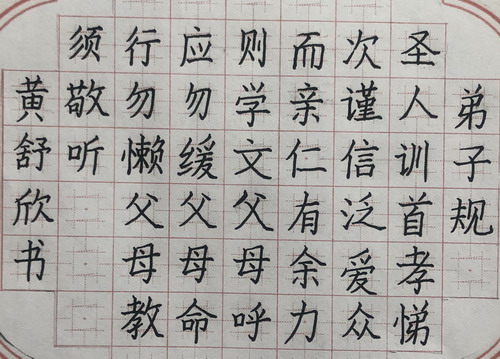 弟子规
圣人训首孝悌
次谨信泛爱众
而亲仁有余力
则学文父母呼
应勿缓父母命
行勿懒父母教
须敬听
黄舒欣书